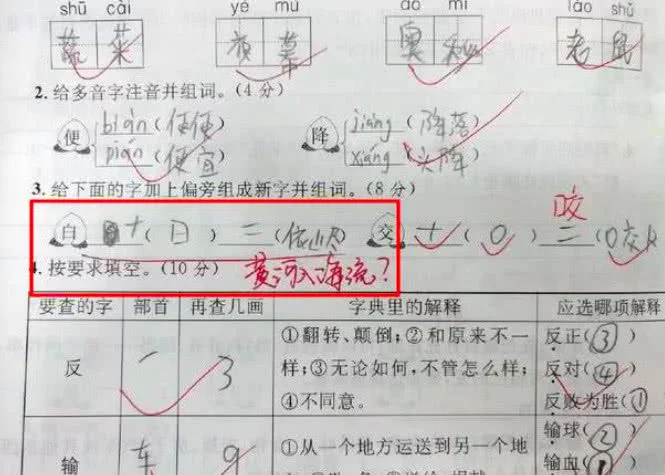 shū cài yè mù ào mì lǎo shǔ
蔬菜 夜幕 奥秘 老鼠
2. 给多音字注音并组词。(4 分)
便 biàn(便便) 降 jiàng(降落)
pián(便宜) xiáng(
3. 给下面的字加上偏旁组成新字并组词。(8 分)
咬
白 十( 日 ) 三(依山尽) 交 十(口) 三(
4. 按要求填空。(10 分) 黄河入海流?
要查的字 部首 再查几画 字典里的解释 应选哪项解释
反 一 3 ①翻转、颠倒;②和原来不一
样;③无论如何,不管怎么样;
④不同意。
反正(③)
反对(④)
反败为胜(①)
输 车 9 ①从一个地方运送到另一个地
输球(②)
输血(①)